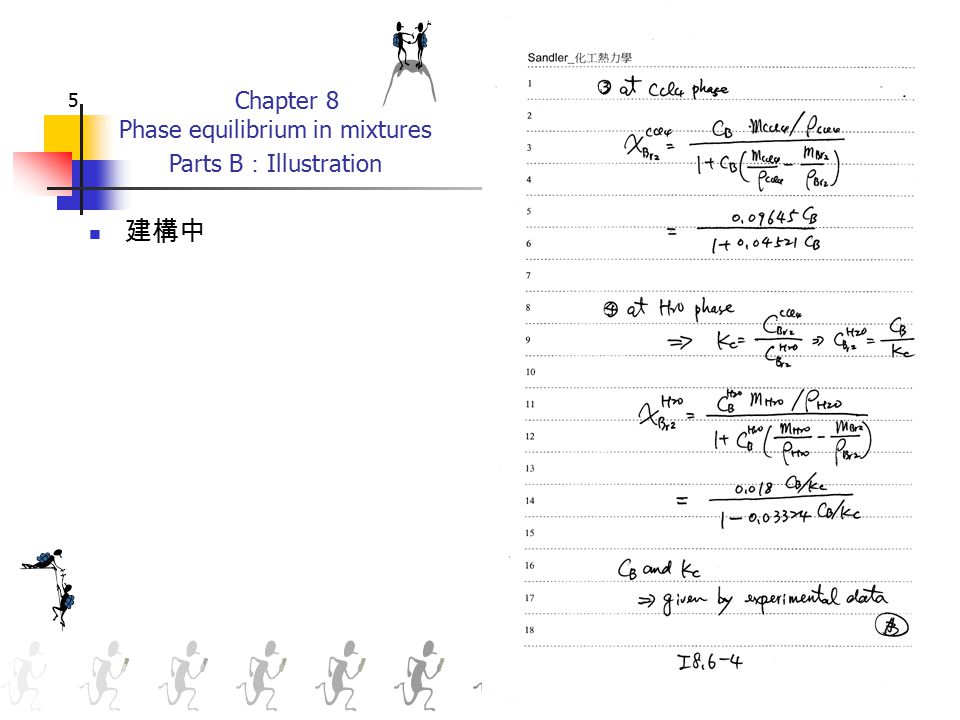 5
Chapter 8
Phase equilibrium in mixtures
Parts B：Illustration
建構中
Sandler_化工熱力學
1
③ at CCl4 phase
2
3
x_Br2^CCl4 = (C_B · M_CCl4/ρ_CCl4) / (1+C_B(M_CCl4/ρ_CCl4 − M_Br2/ρ_Br2))
4
5
= 0.09645 C_B / (1+0.04521 C_B)
6
7
8
④ at H2O phase
9
⇒ K_C = C_Br2^CCl4 / C_Br2^H2O ⇒ C_Br2^H2O = C_B / K_C
10
11
x_Br2^H2O = (C_B^H2O M_H2O/ρ_H2O) / (1+C_B^H2O(M_H2O/ρ_H2O − M_Br2/ρ_Br2))
12
13
14
= 0.018 C_B/K_C / (1−0.03324 C_B/K_C)
15
16
C_B and K_C
17
⇒ given by experimental data
18
I8.6-4